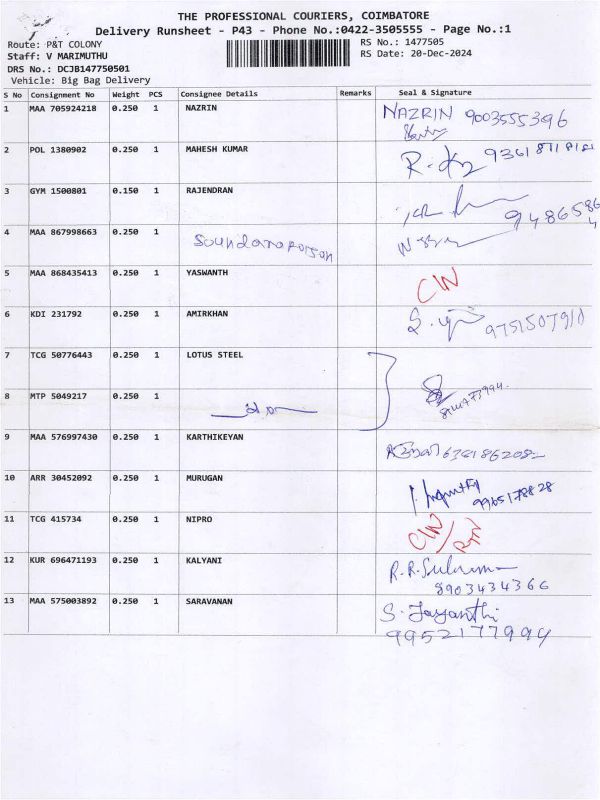 THE PROFESSIONAL COURIERS, COIMBATORE
Delivery Runsheet - P43 - Phone No.:0422-3505555 - Page No.:1
Route: P&T COLONY
RS No.: 1477505
Staff: V MARIMUTHU
RS Date: 20-Dec-2024
DRS No.: DCJB147750501
Vehicle: Big Bag Delivery
S No Consignment No Weight PCS Consignee Details Remarks Seal & Signature
1 MAA 705924218 0.250 1 NAZRIN NAZRIN 9003555396
2 POL 1380902 0.250 1 MAHESH KUMAR
3 GYM 1500801 0.150 1 RAJENDRAN
4 MAA 867998663 0.250 1
5 MAA 868435413 0.250 1 YASWANTH C/N
6 KDI 231792 0.250 1 AMIRKHAN 9751507910
7 TCG 50776443 0.250 1 LOTUS STEEL
8 MTP 5049217 0.250 1
9 MAA 576997430 0.250 1 KARTHIKEYAN
10 ARR 30452092 0.250 1 MURUGAN 9965178828
11 TCG 415734 0.250 1 NIPRO C/N / RTN
12 KUR 696471193 0.250 1 KALYANI
8903434366
13 MAA 575003892 0.250 1 SARAVANAN S. Jayanthi
9952177994